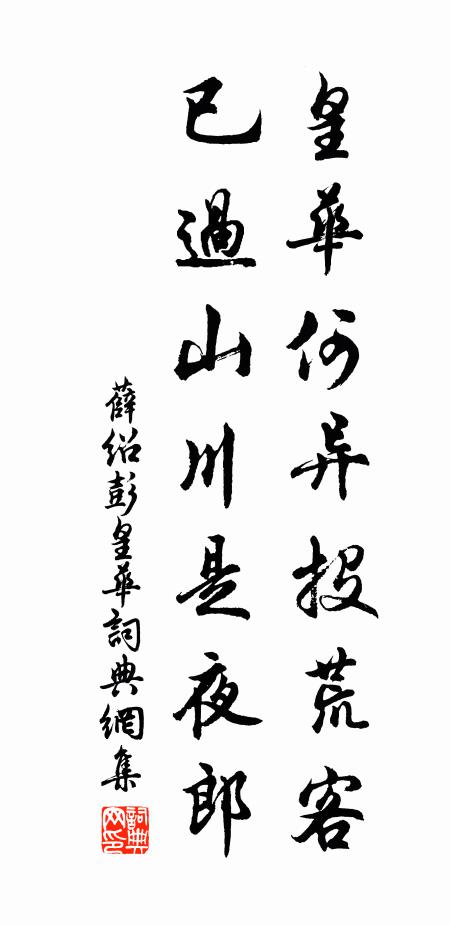 皇華何异投荒客
已過山川是夜郎
薛紹彭皇華詞典網集
詞典網印